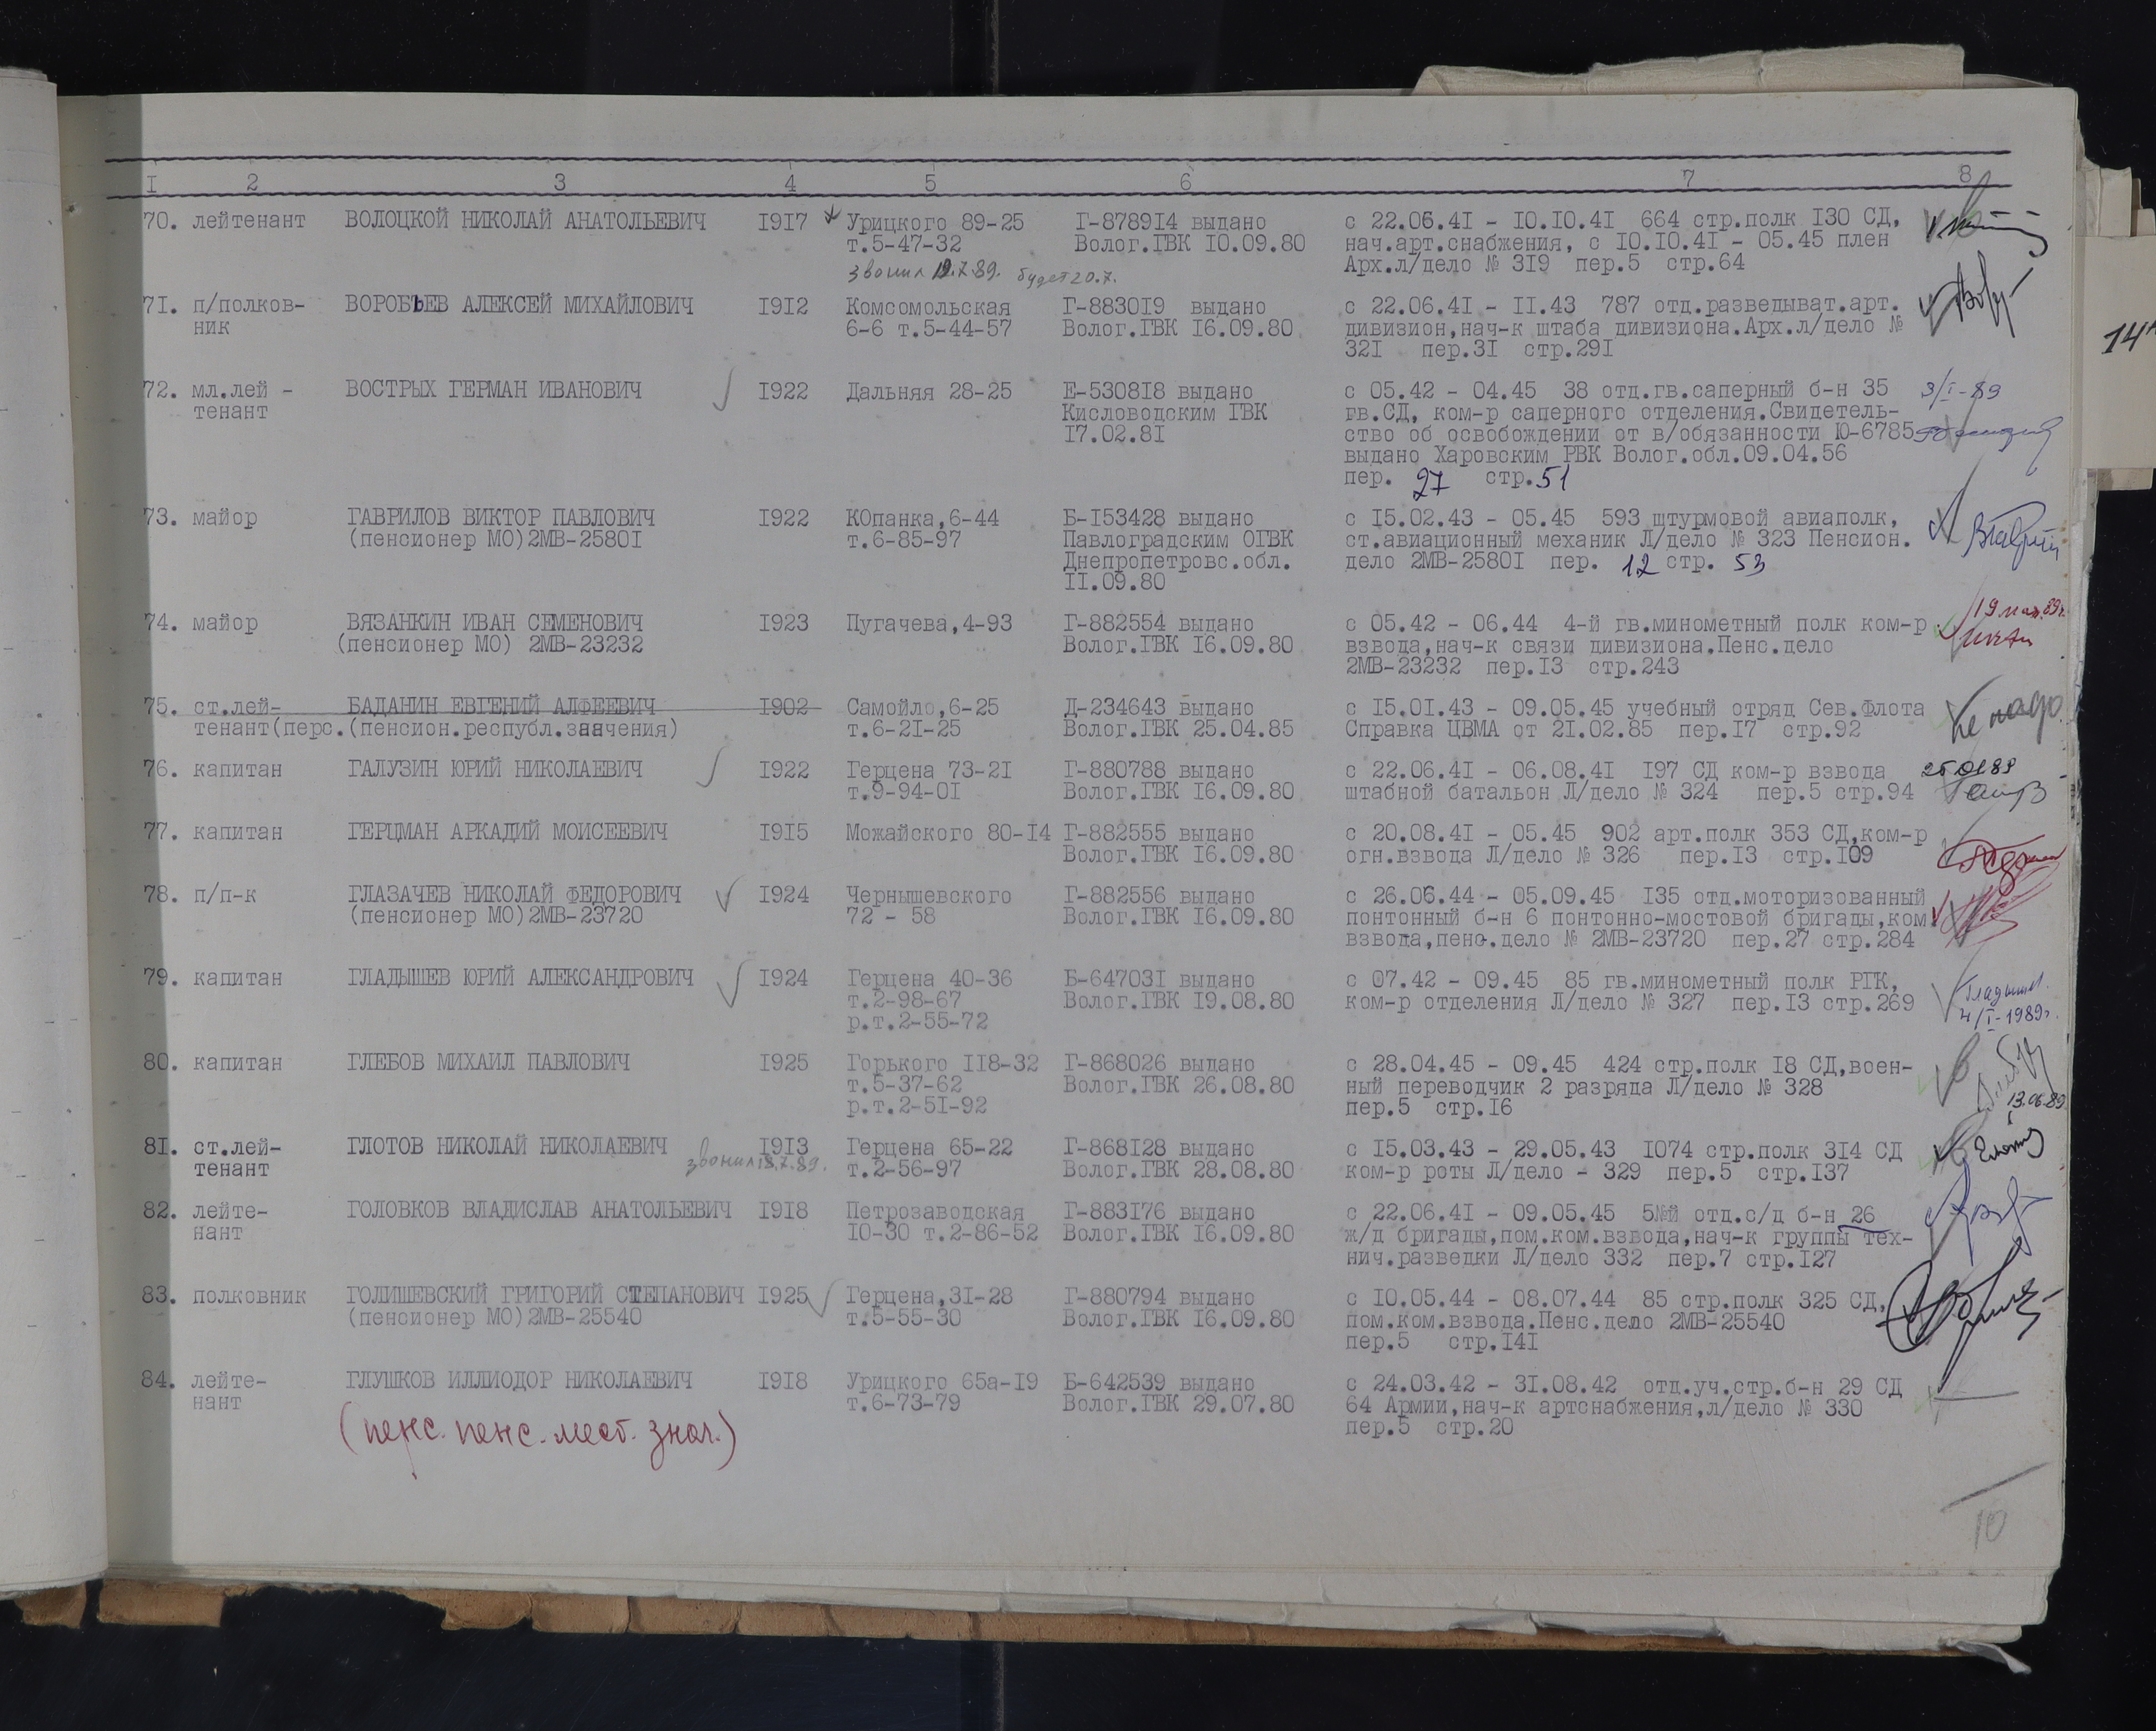 1 2 3 4 5 6 7 8
70. лейтенант ВОЛОЦКОЙ НИКОЛАЙ АНАТОЛЬЕВИЧ 1917 Урицкого 89-25 Г-878914 выдано с 22.06.41 - 10.10.41 664 стр.полк 130 СД,
т.5-47-32 Волог.ГВК 10.09.80 нач.арт.снабжения, с 10.10.41 - 05.45 плен
звонил 19.7.89. будет 20.7. Арх.л/дело № 319 пер.5 стр.64
71. п/полков- ВОРОБЬЕВ АЛЕКСЕЙ МИХАЙЛОВИЧ 1912 Комсомольская Г-883019 выдано с 22.06.41 - 11.43 787 отд.разведыват.арт.
ник 6-6 т.5-44-57 Волог.ГВК 16.09.80 дивизион,нач-к штаба дивизиона.Арх.л/дело №
321 пер.31 стр.291
72. мл.лей - ВОСТРЫХ ГЕРМАН ИВАНОВИЧ 1922 Дальняя 28-25 Е-530818 выдано с 05.42 - 04.45 38 отд.гв.саперный б-н 35 3/I-89
тенант Кисловодским ГВК гв.СД, ком-р саперного отделения.Свидетель-
17.02.81 ство об освобождении от в/обязанности Ю-6785
выдано Харовским РВК Волог.обл.09.04.56
пер. 27 стр.51
73. майор ГАВРИЛОВ ВИКТОР ПАВЛОВИЧ 1922 КОпанка,6-44 Б-153428 выдано с 15.02.43 - 05.45 593 штурмовой авиаполк,
(пенсионер МО)2МВ-25801 т.6-85-97 Павлоградским ОГВК ст.авиационный механик Л/дело № 323 Пенсион.
Днепропетровс.обл. дело 2МВ-25801 пер. 12 стр. 53
11.09.80
74. майор ВЯЗАНКИН ИВАН СЕМЕНОВИЧ 1923 Пугачева,4-93 Г-882554 выдано с 05.42 - 06.44 4-й гв.минометный полк ком-р 19 мая.89г.
(пенсионер МО) 2МВ-23232 Волог.ГВК 16.09.80 взвода,нач-к связи дивизиона.Пенс.дело
2МВ-23232 пер.13 стр.243
75. ст.лей- БАДАНИН ЕВГЕНИЙ АЛФЕЕВИЧ 1902 Самойло,6-25 Д-234643 выдано с 15.01.43 - 09.05.45 учебный отряд Сев.Флота Не надо
тенант(перс.(пенсион.республ.заачения) т.6-21-25 Волог.ГВК 25.04.85 Справка ЦВМА от 21.02.85 пер.17 стр.92
76. капитан ГАЛУЗИН ЮРИЙ НИКОЛАЕВИЧ 1922 Герцена 73-21 Г-880788 выдано с 22.06.41 - 06.08.41 197 СД ком-р взвода 25.01.89
т.9-94-01 Волог.ГВК 16.09.80 штабной батальон Л/дело № 324 пер.5 стр.94
77. капитан ГЕРЦМАН АРКАДИЙ МОИСЕЕВИЧ 1915 Можайского 80-14 Г-882555 выдано с 20.08.41 - 05.45 902 арт.полк 353 СД,ком-р
Волог.ГВК 16.09.80 огн.взвода Л/дело № 326 пер.13 стр.109
78. п/п-к ГЛАЗАЧЕВ НИКОЛАЙ ФЕДОРОВИЧ 1924 Чернышевского Г-882556 выдано с 26.06.44 - 05.09.45 135 отд.моторизованный
(пенсионер МО)2МВ-23720 72 - 58 Волог.ГВК 16.09.80 понтонный б-н 6 понтонно-мостовой бригады,ком.
взвода,пенс.дело № 2МВ-23720 пер.27 стр.284
79. капитан ГЛАДЫШЕВ ЮРИЙ АЛЕКСАНДРОВИЧ 1924 Герцена 40-36 Б-647031 выдано с 07.42 - 09.45 85 гв.минометный полк РГК,
т.2-98-67 Волог.ГВК 19.08.80 ком-р отделения Л/дело № 327 пер.13 стр.269 4/I-1989г.
р.т.2-55-72
80. капитан ГЛЕБОВ МИХАИЛ ПАВЛОВИЧ 1925 Горького 118-32 Г-868026 выдано с 28.04.45 - 09.45 424 стр.полк 18 СД,воен-
т.5-37-62 Волог.ГВК 26.08.80 ный переводчик 2 разряда Л/дело № 328
р.т.2-51-92 пер.5 стр.16 13.06.89
81. ст.лей- ГЛОТОВ НИКОЛАЙ НИКОЛАЕВИЧ 1913 Герцена 65-22 Г-868128 выдано с 15.03.43 - 29.05.43 1074 стр.полк 314 СД
тенант звонил 18.7.89. т.2-56-97 Волог.ГВК 28.08.80 ком-р роты Л/дело - 329 пер.5 стр.137
82. лейте- ГОЛОВКОВ ВЛАДИСЛАВ АНАТОЛЬЕВИЧ 1918 Петрозаводская Г-883176 выдано с 22.06.41 - 09.05.45 5й отд.с/д б-н 26
нант 10-30 т.2-86-52 Волог.ГВК 16.09.80 ж/д бригады,пом.ком.взвода,нач-к группы тех-
нич.разведки Л/дело 332 пер.7 стр.127
83. полковник ГОЛИШЕВСКИЙ ГРИГОРИЙ СТЕПАНОВИЧ 1925 Герцена,31-28 Г-880794 выдано с 10.05.44 - 08.07.44 85 стр.полк 325 СД,
(пенсионер МО)2МВ-25540 т.5-55-30 Волог.ГВК 16.09.80 пом.ком.взвода.Пенс.дело 2МВ-25540
пер.5 стр.141
84. лейте- ГЛУШКОВ ИЛЛИОДОР НИКОЛАЕВИЧ 1918 Урицкого 65а-19 Б-642539 выдано с 24.03.42 - 31.08.42 отд.уч.стр.б-н 29 СД
нант т.6-73-79 Волог.ГВК 29.07.80 64 Армии,нач-к артснабжения,л/дело № 330
(пенс. пенс. мест. знач.) пер.5 стр.20
10
14